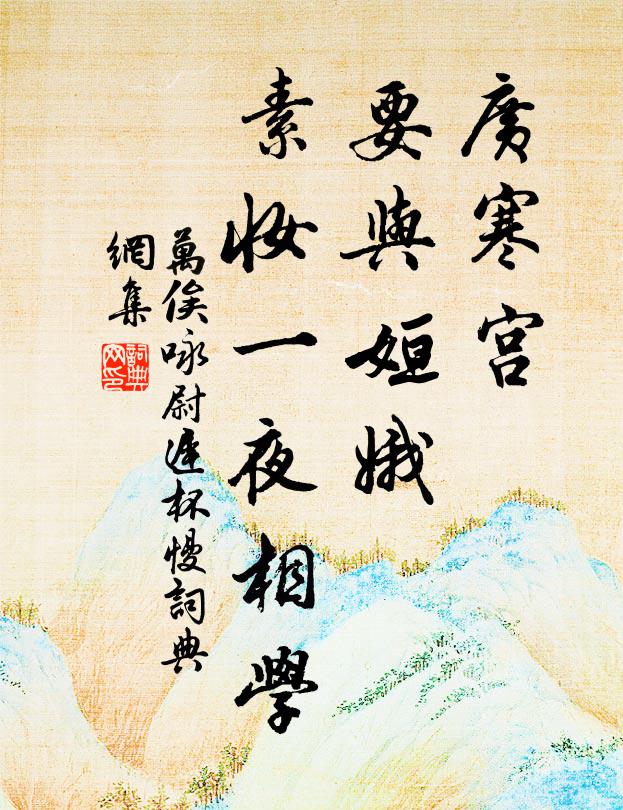 廣寒宮
要與姮娥
素妝一夜相學
萬俟咏尉遲杯慢詞典
網集
詞典
网印